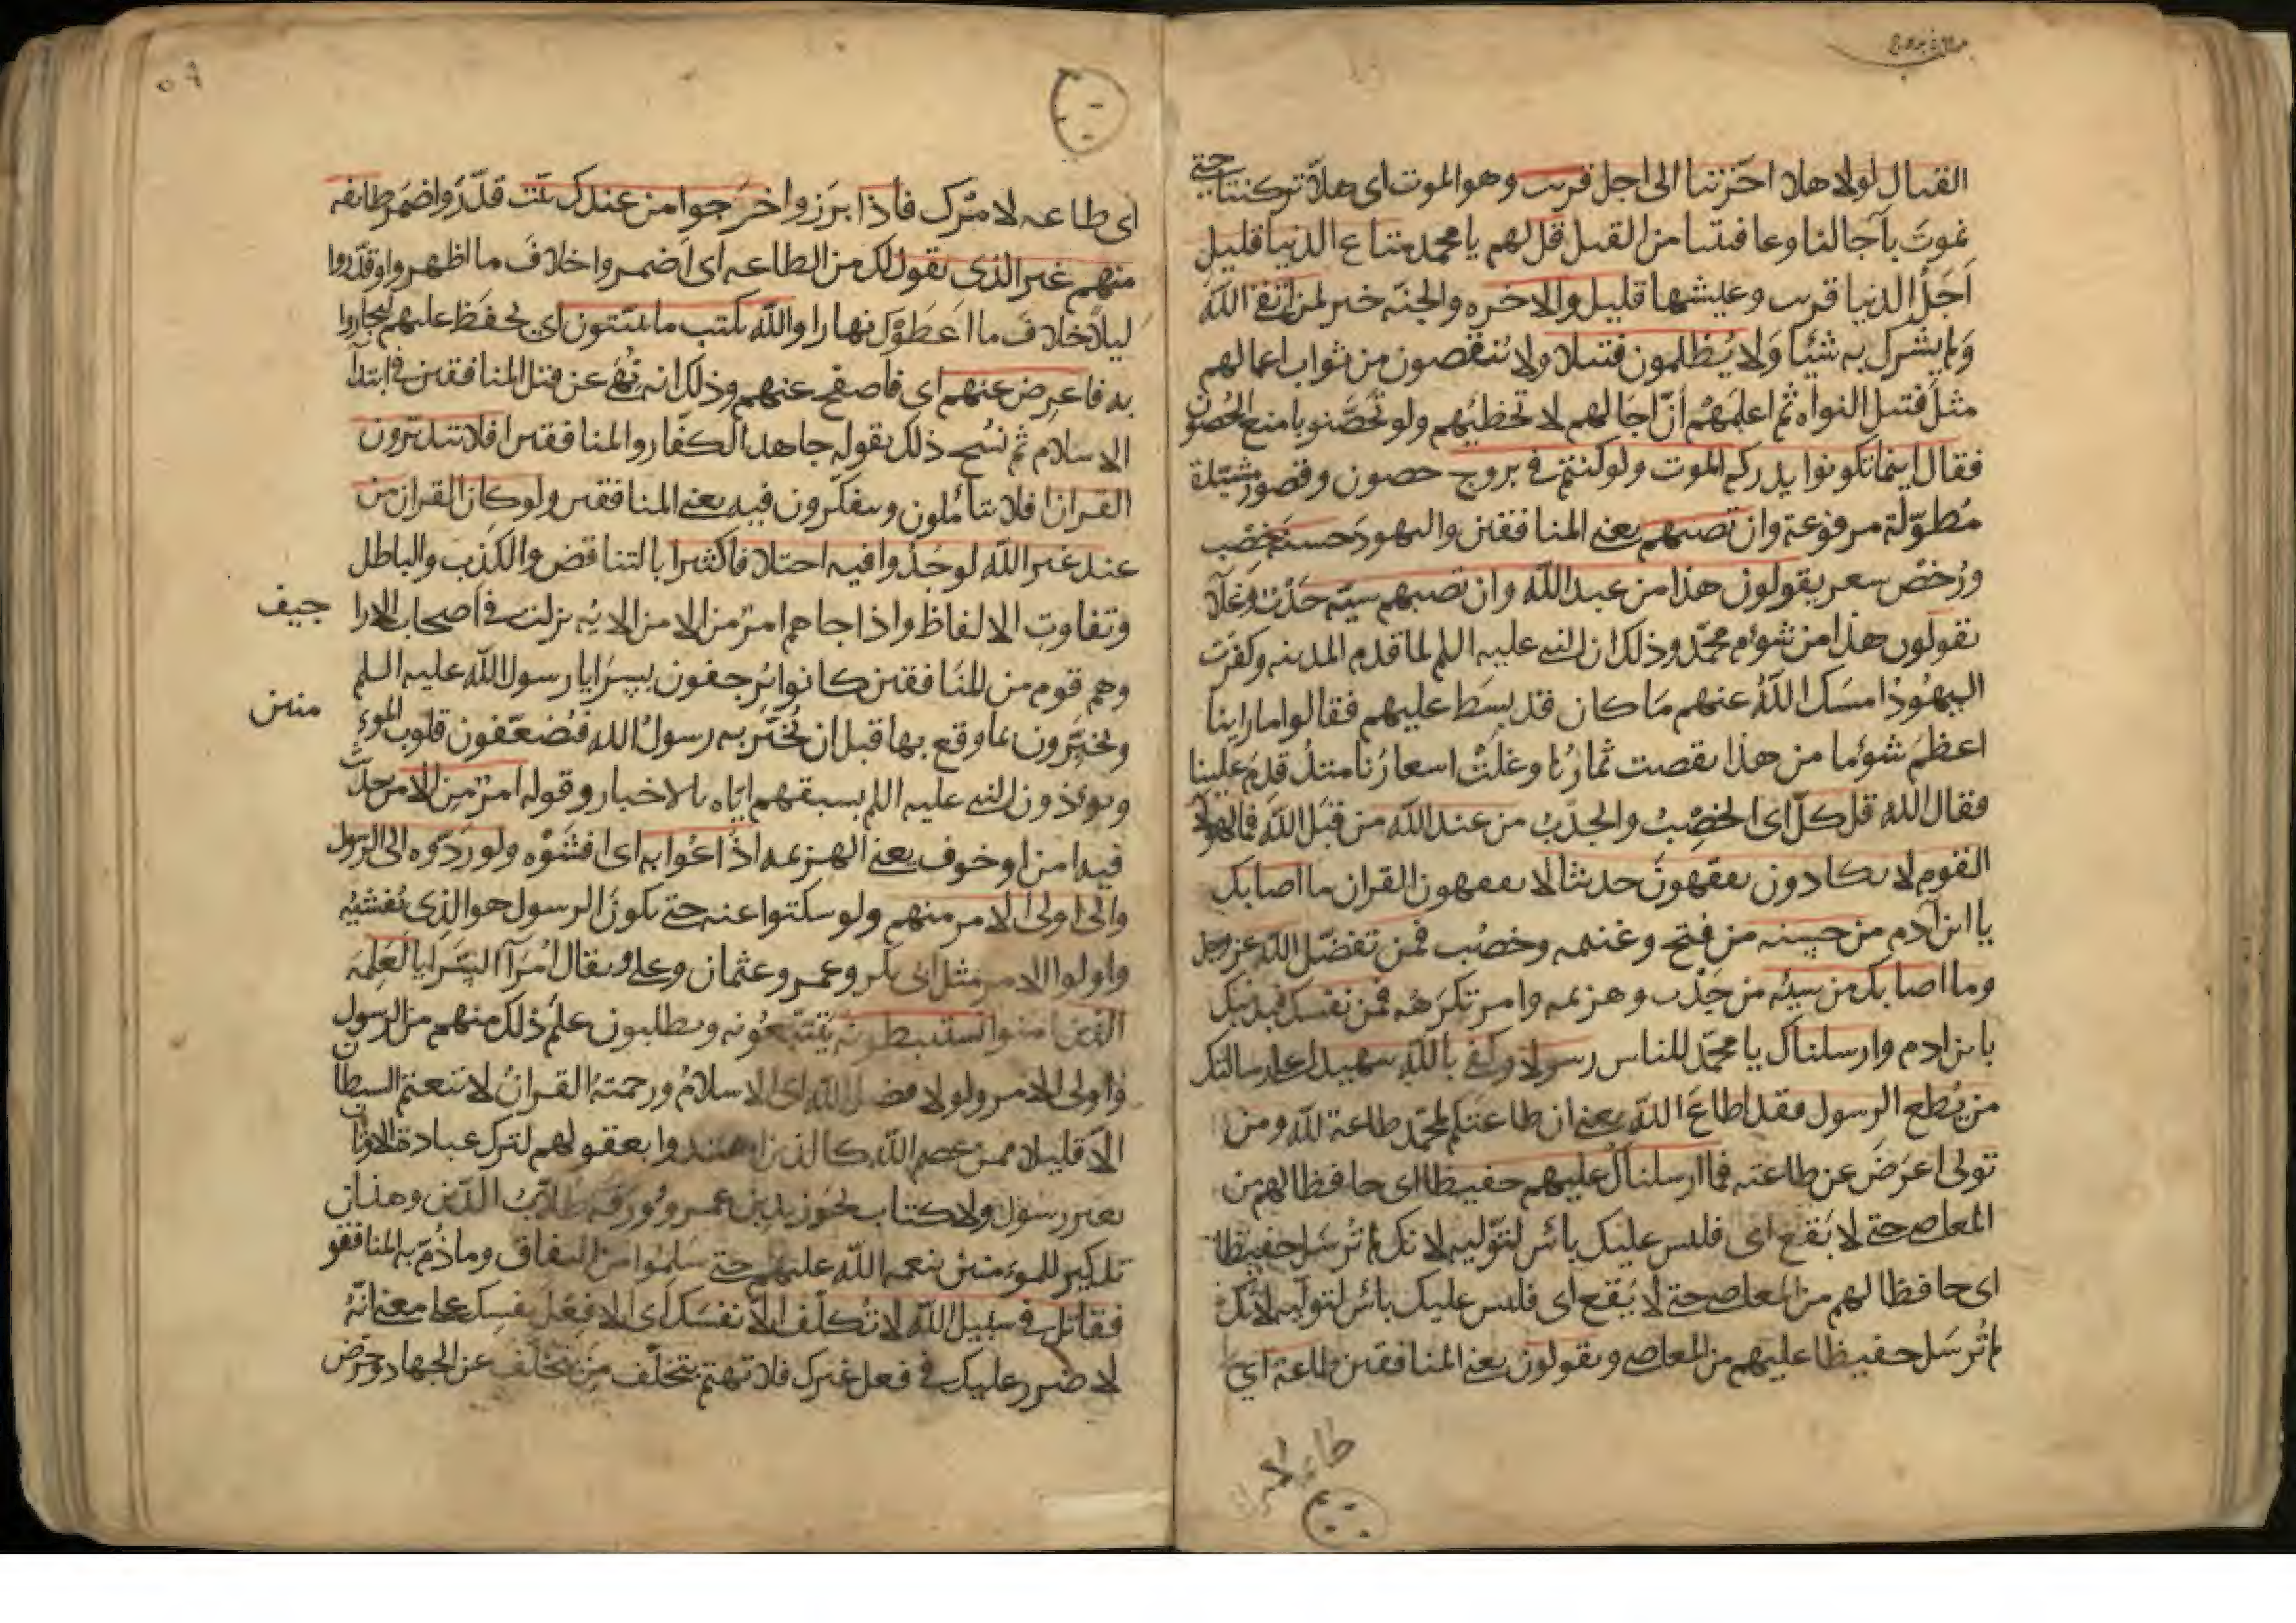 القتال لولا هلا اخرتنا الى اجل قريب وهو الموت اى هلا تركتنا حتى
نموت بآجالنا وعافيتنا من القتل قل لهم يا محمد متاع الدنيا قليل
اجل الدنيا قريب وعيشها قليل والاخره والجنه خير لمن اتقى الله
ولم يشرك به شيئا ولا يظلمون فتيلا ولا ينقصون من ثواب اعمالهم
مثل فتيل النواه ثم اعلمهم ان اجالهم لا تخطيهم ولو تحصنو بامنع الحصون
فقال اينما تكونوا يدرككم الموت ولو كنتم فى بروج حصون وقصور مشيدة
مطولة مرفوعة وان تصبهم يعنى المنافقين واليهود حسنة خصب
ورخص سعر يقولون هذا من عند الله وان تصبهم سيئه جدب وغلآ
يقولون هذا من شوم محمد وذلك ان النبى عليه السلم لما قدم المدينه وكفرت
اليهود امسك الله عنهم ما كان قد بسط عليهم فقالوا ما راينا
اعظم شوما من هذا نقصت ثمارنا وغلت اسعارنا منذ قدم علينا
فقال الله قل كل اى الخصب والجدب من عند الله من قبل الله فمال هولآ
القوم لا يكادون يفقهون حديثا لا يفقهون القران ما اصابك
يا ابن آدم من حسنه من فتح وغنيمه وخصب فمن تفضل الله عز وجل
وما اصابك من سيئه من جدب وهزيمه وامر تكرهه فمن نفسك فبذنبك
يابن ادم وارسلناك يا محمد للناس رسولا وكفى بالله شهيدا على رسالتك
من يطع الرسول فقد اطاع الله يعنى ان طاعتكم لمحمد طاعة لله ومن
تولى اعرض عن طاعته فما ارسلناك عليهم حفيظا اى حافظا لهم من
المعاصى حتى لا يقع اى فليس عليك بائس لتوليه لانك لم ترسل حفيظا
اى حافظا لهم من المعاصى حتى لا يقع اى فليس عليك بائس لتوليه لانك
لم ترسل حفيظا عليهم من المعاصى ويقولون يعنى المنافقين طاعة اى
طاعه لامرك
٥٩
اى طاعه لامرك فاذا برزوا خرجوا من عندك بيت قدر واضمر طايفه
منهم غير الذى تقول لك من الطاعه اى اضمروا خلاف ما اظهروا وقدروا
ليلا خلاف ما اعطوك نهارا والله يكتب ما يبيتون اى يحفظ عليهم ليجازوا
به فاعرض عنهم اى فاصفح عنهم وذلك انه نهى عن قتل المنافقين فى ابتدآ
الاسلام ثم نسخ ذلك بقوله جاهد الكفار والمنافقين افلا يتدبرون
القران افلا يتأملون ويتفكرون فيه يعنى المنافقين ولو كان القران من
عند غير الله لوجدوا فيه اختلافا كثيرا بالتناقض والكذب والباطل
وتفاوت الالفاظ واذا جاهم امر من الامن الايه نزلت فى اصحاب الارا
جيف
وهم قوم من المنافقين كانوا يرجفون بسرايا رسول الله عليه السلم
ويخبرون بما وقع بها قبل ان يخبر به رسول الله فيضعفون قلوب المو
منين
ويوذون النبى عليه السلم بسبقهم اياه بالاخبار وقوله امر من الامن حديث
فيه امن او خوف يعنى الهزيمه اذاعوا به اى افشوه ولو ردوه الى الرسول
والى اولى الامر منهم ولو سكتوا عنه حتى يكون الرسول هو الذى يفشيه
واولوا الامر مثل ابى بكر وعمر وعثمان وعلى ويقال امرآ السرايا لعلمه
الذين يستنبطونه يتتبعونه ويطلبون علم ذلك منهم من الرسول
واولى الامر ولولا فضل الله اى الاسلام ورحمته القران لاتبعتم الشيطان
الا قليلا ممن عصم الله كالذين اهتدوا بعقولهم لترك عبادة الاوثان
بغير رسول ولا كتاب نحو زيد بن عمرو وورقه طلاب الدين وهذان
تذكير للمومنين بنعمه الله عليهم حتى سلموا من النفاق وما ذم به المنافقو
فقاتل فى سبيل الله لا تكلف الا نفسك اى الا فعل نفسك على معنى انه
لا ضرر عليك فى فعل غيرك فلا تهتم بتخلف من يتخلف عن الجهاد وحرض